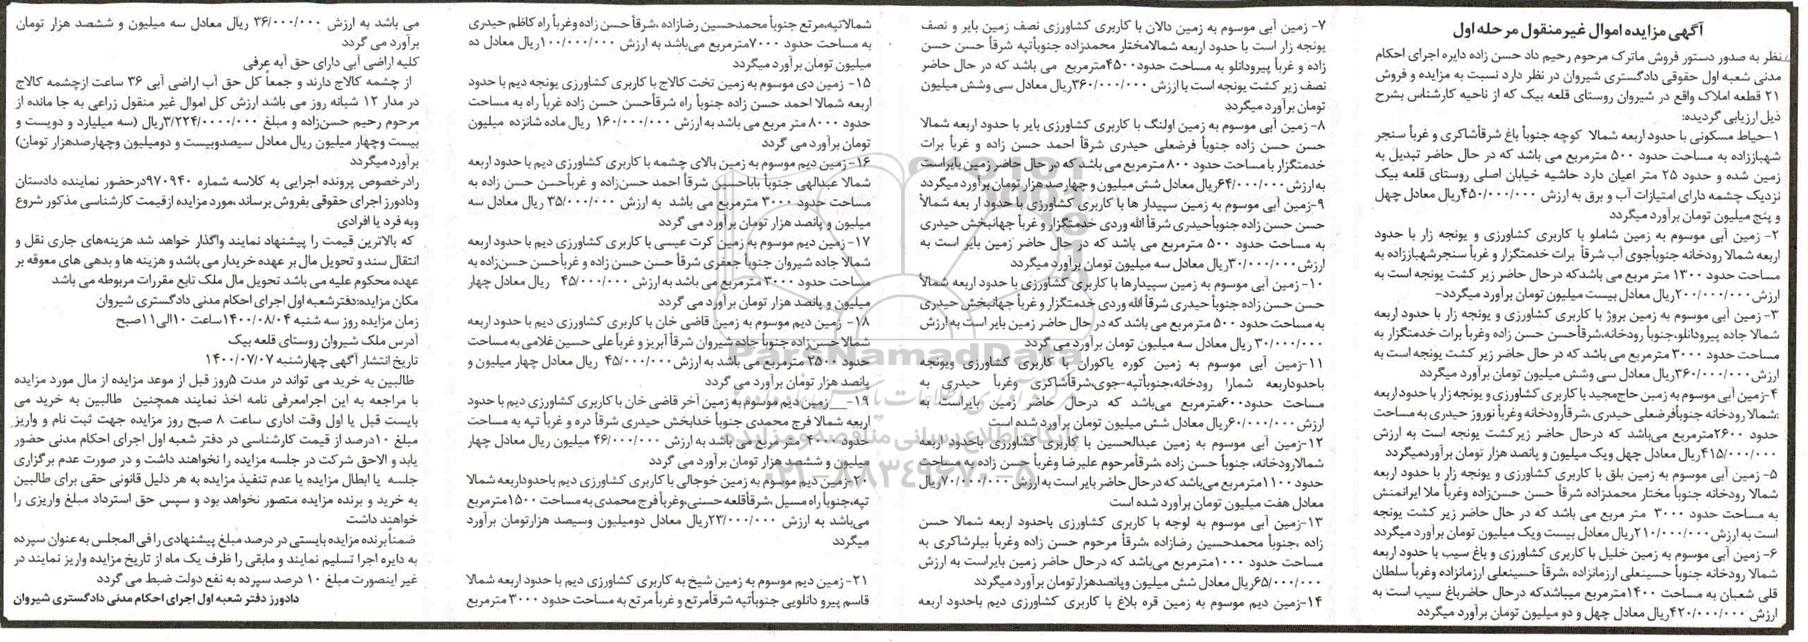 آگهی مزایده اموال غیر منقول مرحله اول
نظر به صدور دستور فروش ماترک مرحوم رحیم داد حسن زاده دایره اجرای احکام
مدنی شعبه اول حقوقی دادگستری شیروان در نظر دارد نسبت به مزایده و فروش
۲۱ قطعه املاک واقع در شیروان روستای قلعه بیک که از ناحیه کارشناس بشرح
ذیل ارزیابی گردیده:
۱-حیاط مسکونی با حدود اربعه شمالا کوچه جنوباً باغ شرقاًشاکری و غرباً سنجر
شهباززاده به مساحت حدود ۵۰۰ مترمربع می باشد که در حال حاضر تبدیل به
زمین شده و حدود ۲۵ متر اعیان دارد حاشیه خیابان اصلی روستای قلعه بیک
نزدیک چشمه دارای امتیازات آب و برق به ارزش ۴۵۰/۰۰۰/۰۰۰ریال معادل چهل
و پنج میلیون تومان برآورد میگردد
۲- زمین آبی موسوم به زمین شاملو با کاربری کشاورزی و یونجه زار با حدود
اربعه شمالا رودخانه جنوباًجوی آب شرقاً برات خدمتگزار و غرباً سنجرشهباززاده به
مساحت حدود ۱۳۰۰ متر مربع می باشدکه درحال حاضر زیر کشت یونجه است به
ارزش ۲۰۰/۰۰۰/۰۰۰ریال معادل بیست میلیون تومان برآورد میگردد-
۳- زمین آبی موسوم به زمین بروژ با کاربری کشاورزی و یونجه زار با حدود اربعه
شمالا جاده پیرودانلو،جنوباً رودخانه،شرقاًحسن حسن زاده وغرباً برات خدمتگزار به
مساحت حدود ۳۰۰۰ مترمربع می باشد که در حال حاضر زیر کشت یونجه است به
ارزش۳۶۰/۰۰۰/۰۰۰ریال معادل سی وشش میلیون تومان برآورد میگردد
۴-زمین آبی موسوم به زمین حاج‌مجید با کاربری کشاورزی و یونجه زار با حدود اربعه
:شمالا رودخانه جنوباًفرضعلی حیدری ،شرقاًرودخانه وغرباً نوروز حیدری به مساحت
حدود ۲۶۰۰مترمربع می‌باشد که درحال حاضر زیرکشت یونجه است به ارزش
۴۱۵/۰۰۰/۰۰۰ریال معادل چهل ویک میلیون و پانصد هزار تومان برآوردمیگردد
۵- زمین آبی موسوم به زمین بلق با کاربری کشاورزی و یونجه زار با حدود اربعه
شمالا رودخانه جنوباً مختار محمدزاده شرقاً حسن حسن‌زاده وغرباً ملا ایرانمنش
به مساحت حدود ۳۰۰۰ متر مربع می باشد که در حال حاضر زیر کشت یونجه
است به ارزش۲۱۰/۰۰۰/۰۰۰ریال معادل بیست ویک میلیون تومان برآورد میگردد
۶- زمین آبی موسوم به زمین خلیل با کاربری کشاورزی و باغ سیب با حدود اربعه
شمالا رودخانه جنوباً حسینعلی ارزمانزاده ،شرقاً حسینعلی ارزمانزاده وغرباً سلطان
قلی شعبان به مساحت ۱۴۰۰مترمربع میباشدکه درحال حاضرباغ سیب است به
ارزش ۴۲۰/۰۰۰/۰۰۰ریال معادل چهل و دو میلیون تومان برآورد میگردد
۷- زمین آبی موسوم به زمین دالان با کاربری کشاورزی نصف زمین بایر و نصف
یونجه زار است با حدود اربعه شمالامختار محمدزاده جنوباًتپه شرقاً حسن حسن
زاده و غرباً پیرودانلو به مساحت حدود۴۵۰۰مترمربع می باشد که در حال حاضر
نصف زیر کشت یونجه است با ارزش ۳۶۰/۰۰۰/۰۰۰ریال معادل سی وشش میلیون
تومان برآورد میگردد
۸- زمین آبی موسوم به زمین اولنگ با کاربری کشاورزی بایر با حدود اربعه شمالا
حسن حسن زاده جنوباً فرضعلی حیدری شرقاً احمد حسن زاده و غرباً برات
خدمتگزار با مساحت حدود ۸۰۰ مترمربع می باشد که در حال حاضر زمین بایراست
به ارزش۶۴/۰۰۰/۰۰۰ریال معادل شش میلیون و چهارصد هزار تومان برآورد میگردد
۹-زمین آبی موسوم به زمین سپیدار ها با کاربری کشاورزی با حدود ار بعه شمالاً
حسن حسن زاده جنوباًحیدری شرقاً الله وردی خدمتگزار و غرباً جهانبخش حیدری
به مساحت حدود ۵۰۰ مترمربع می باشد که در حال حاضر زمین بایر است به
ارزش۳۰/۰۰۰/۰۰۰ریال معادل سه میلیون تومان برآورد میگردد
۱۰- زمین آبی موسوم به زمین سپیدارها با کاربری کشاورزی با حدود اربعه شمالاً
حسن حسن زاده جنوباً حیدری شرقاً الله وردی خدمتگزار و غرباً جهانبخش حیدری
به مساحت حدود ۵۰۰ مترمربع می باشد که در حال حاضر زمین بایر است به ارزش
۳۰/۰۰۰/۰۰۰ ریال معادل سه میلیون تومان برآورد می گردد
۱۱-زمین آبی موسوم به زمین کوره یاکوران با کاربری کشاورزی ویونجه
باحدوداربعه شمارا رودخانه،جنوباًتپه-جوی،شرقاًشاکری وغرباً حیدری به
مساحت حدود۶۰۰مترمربع می‌باشد که درحال حاضر زمین بایراست به
ارزش۶۰/۰۰۰/۰۰۰ریال معادل شش میلیون تومان برآورد شده است
۱۲-زمین آبی موسوم به زمین عبدالحسین با کاربری کشاورزی باحدود اربعه
شمالارودخانه، جنوباً حسن زاده ،شرقاًمرحوم علیرضا وغرباً حسن زاده به مساحت
حدود ۱۱۰۰مترمربع می‌باشد که درحال حاضر بایر است به ارزش ۷۰/۰۰۰/۰۰۰ریال
معادل هفت میلیون تومان برآورد شده است
۱۳-زمین آبی موسوم به لوجه با کاربری کشاورزی باحدود اربعه شمالا حسن
زاده ،جنوباً محمدحسین رضازاده ،شرقاً مرحوم حسن زاده وغرباً بیلرشاکری به
مساحت حدود ۱۰۰۰مترمربع می‌باشد که درحال حاضر زمین بایراست به ارزش
۶۵/۰۰۰/۰۰۰ریال معادل شش میلیون وپانصدهزارتومان برآورد میگردد
۱۴-زمین دیم موسوم به زمین قره بلاغ با کاربری کشاورزی دیم باحدود اربعه
شمالاتپه،مرتع جنوباً محمدحسین رضازاده ،شرقاً حسن زاده وغرباً راه کاظم حیدری
به مساحت حدود ۷۰۰۰مترمربع می‌باشد به ارزش ۱۰۰/۰۰۰/۰۰۰ریال معادل ده
میلیون تومان برآورد میگردد
۱۵- زمین دی موسوم به زمین تخت کالاج با کاربری کشاورزی یونجه دیم با حدود
اربعه شمالا احمد حسن زاده جنوباً راه شرقاًحسن حسن زاده غرباً راه به مساحت
حدود ۸۰۰۰ متر مربع می باشد به ارزش ۱۶۰/۰۰۰/۰۰۰ ریال ماده شانزده میلیون
تومان برآورد می گردد
۱۶- زمین دیم موسوم به زمین بالای چشمه با کاربری کشاورزی دیم با حدود اربعه
شمالا عبدالهی جنوباً باباحسین شرقاً احمد حسن‌زاده و غرباًحسن حسن زاده به
مساحت حدود ۳۰۰۰ مترمربع می باشد به ارزش ۳۵/۰۰۰/۰۰۰ ریال معادل سه
میلیون و پانصد هزار تومان برآورد می گردد
۱۷- زمین دیم موسوم به زمین کرت عیسی با کاربری کشاورزی دیم با حدود اربعه
شمالا جاده شیروان جنوباً جعفری شرقاً حسن حسن زاده و غرباًحسن حسن‌زاده به
مساحت حدود ۳۰۰۰ مترمربع می باشد به ارزش ۴۵/۰۰۰/۰۰۰ ریال معادل چهار
میلیون و پانصد هزار تومان برآورد می گردد
۱۸- زمین دیم موسوم به زمین قاضی خان با کاربری کشاورزی دیم با حدود اربعه
شمالا حسن‌زاده جنوباً جاده شیروان شرقاً آبریز و غرباً علی حسین غلامی به مساحت
حدود ۲۵۰۰ مترمربع می باشد به ارزش ۴۵/۰۰۰/۰۰۰ ریال معادل چهار میلیون و
پانصد هزار تومان برآورد می گردد
۱۹- زمین دیم موسوم به زمین آخر قاضی خان با کاربری کشاورزی دیم با حدود
اربعه شمالا فرج محمدی جنوباً خدابخش حیدری شرقاً دره و غرباً تپه به مساحت
حدود مترمربع می باشد به ارزش ۴۶/۰۰۰/۰۰۰ میلیون ریال معادل چهار
میلیون و ششصد هزار تومان برآورد می گردد
۲۰-زمین دیم موسوم به زمین خوجالی با کاربری کشاورزی دیم باحدوداربعه شمالا
تپه،جنوباً راه مسیل ،شرقاًقلعه حسنی،وغرباً فرج محمدی به مساحت ۱۵۰۰مترمربع
می‌باشد به ارزش ۲۳/۰۰۰/۰۰۰ریال معادل دومیلیون وسیصد هزارتومان برآورد
میگردد
۲۱- زمین دیم موسوم به زمین شیخ به کاربری کشاورزی دیم با حدود اربعه شمالا
قاسم پیرو دانلویی جنوباًتپه شرقاًمرتع و غرباً مرتع به مساحت حدود ۳۰۰۰ مترمربع
می باشد به ارزش ۳۶/۰۰۰/۰۰۰ ریال معادل سه میلیون و ششصد هزار تومان
برآورد می گردد
کلیه اراضی آبی دارای حق آبه عرفی
از چشمه کالاج دارند و جمعاً کل حق آب اراضی آبی ۳۶ ساعت ازچشمه کالاج
در مدار ۱۲ شبانه روز می باشد ارزش کل اموال غیر منقول زراعی به جا مانده از
مرحوم رحیم حسن‌زاده و مبلغ ۳/۲۲۴/۰۰۰۰/۰۰۰ریال (سه میلیارد و دویست و
بیست وچهار میلیون ریال معادل سیصدوبیست و دومیلیون وچهارصدهزار تومان)
برآورد میگردد
رادرخصوص پرونده اجرایی به کلاسه شماره ۹۷۰۹۴۰درحضور نماینده دادستان
ودادورز اجرای حقوقی بفروش برساند ،مورد مزایده ازقیمت کارشناسی مذکور شروع
وبه فرد یا افرادی
که بالاترین قیمت را پیشنهاد نمایند واگذار خواهد شد هزینه‌های جاری نقل و
انتقال سند و تحویل مال بر عهده خریدار می باشد و هزینه ها و بدهی های معوقه بر
عهده محکوم علیه می باشد تحویل مال ملک تابع مقررات مربوطه می باشد
مکان مزایده:دفترشعبه اول اجرای احکام مدنی دادگستری شیروان
زمان مزایده روز سه شنبه ۱۴۰۰/۰۸/۰۴ساعت ۱۰الی۱۱صبح
آدرس ملک شیروان روستای قلعه بیک
تاریخ انتشار آگهی چهارشنبه ۱۴۰۰/۰۷/۰۷
طالبین به خرید می تواند در مدت ۵روز قبل از موعد مزایده از مال مورد مزایده
با مراجعه به این اجرامعرفی نامه اخذ نمایند همچنین طالبین به خرید می
بایست قبل یا اول وقت اداری ساعت ۸ صبح روز مزایده جهت ثبت نام و واریز
مبلغ ۱۰درصد از قیمت کارشناسی در دفتر شعبه اول اجرای احکام مدنی حضور
یابد و الاحق شرکت در جلسه مزایده را نخواهند داشت و در صورت عدم برگزاری
جلسه یا ابطال مزایده یا عدم تنفیذ مزایده به هر دلیل قانونی حقی برای طالبین
به خرید و برنده مزایده متصور نخواهد بود و سپس حق استرداد مبلغ واریزی را
خواهند داشت
ضمناً برنده مزایده بایستی در درصد مبلغ پیشنهادی را فی المجلس به عنوان سپرده
به دایره اجرا تسلیم نمایند و مابقی را ظرف یک ماه از تاریخ مزایده واریز نمایند در
غیر اینصورت مبلغ ۱۰ درصد سپرده به نفع دولت ضبط می گردد
دادورز دفتر شعبه اول اجرای احکام مدنی دادگستری شیروان
ParsNamadData
پایگاه اطلاع رسانی مناقصه و مزایده